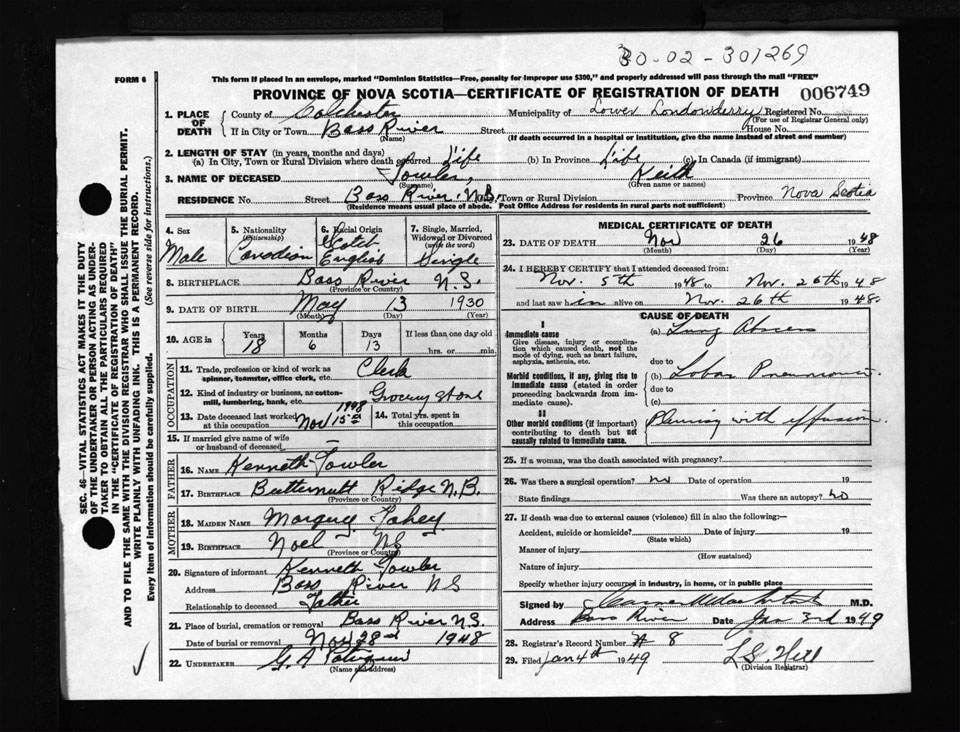 30-02-301269
FORM 6
This form if placed in an envelope, marked "Dominion Statistics—Free, penalty for improper use $300," and properly addressed will pass through the mail "FREE"
PROVINCE OF NOVA SCOTIA—CERTIFICATE OF REGISTRATION OF DEATH
006749
SEC. 46—VITAL STATISTICS ACT MAKES IT THE DUTY
OF THE UNDERTAKER OR PERSON ACTING AS UNDER-
TAKER TO OBTAIN ALL THE PARTICULARS REQUIRED
IN THE "CERTIFICATE OF REGISTRATION OF DEATH"
AND TO FILE THE SAME WITH THE DIVISION REGISTRAR WHO SHALL ISSUE THE BURIAL PERMIT.
WRITE PLAINLY WITH UNFADING INK. THIS IS A PERMANENT RECORD.
Every item of information should be carefully supplied. (See reverse side for instructions.)
1. PLACE OF DEATH County of Colchester Municipality of Lower Londonderry Registered No.
(For use of Registrar General only)
If in City or Town Bass River Street House No.
(Name) (If death occurred in a hospital or institution, give the name instead of street and number)
2. LENGTH OF STAY (in years, months and days)
(a) In City, Town or Rural Division where death occurred Life (b) In Province Life (c) In Canada (if immigrant)
3. NAME OF DECEASED Fowler, Keith
(Surname) (Given name or names)
RESIDENCE No. Street Bass River, N.S. Town or Rural Division Province Nova Scotia
(Residence means usual place of abode. Post Office Address for residents in rural parts not sufficient)
4. Sex
Male
5. Nationality
(Citizenship)
Canadian
6. Racial Origin
Scotch
English
7. Single, Married,
Widowed or Divorced
(write the word)
Single
8. BIRTHPLACE Bass River N.S.
(Province or Country)
9. DATE OF BIRTH May 13 1930
(Month) (Day) (Year)
10. AGE in Years Months Days If less than one day old
18 6 13 hrs. or min.
OCCUPATION
11. Trade, profession or kind of work as Clerk
spinner, teamster, office clerk, etc.
12. Kind of industry or business, as cotton- Grocery store
mill, lumbering, bank, etc.
13. Date deceased last worked 1948
at this occupation Nov 15th
14. Total yrs. spent in
this occupation
15. If married give name of wife —
or husband of deceased
FATHER
16. NAME Kenneth Fowler
17. BIRTHPLACE Butternutt Ridge N.B.
(Province or Country)
MOTHER
18. MAIDEN NAME Fahey
19. BIRTHPLACE Noel NS
(Province or Country)
20. Signature of informant Kenneth Fowler
Address Bass River NS
Relationship to deceased Father
21. Place of burial, cremation or removal Bass River N.S.
Date of burial or removal Nov 28 1948
22. UNDERTAKER G. A
(Name and address)
MEDICAL CERTIFICATE OF DEATH
23. DATE OF DEATH Nov 26 1948
(Month) (Day) (Year)
24. I HEREBY CERTIFY that I attended deceased from:
Nov. 5th 1948 to Nov. 26th 1948
and last saw him alive on Nov. 26th 1948
CAUSE OF DEATH
I
Immediate cause (a) Lung Abscess
Give disease, injury or complica-
tion which caused death, not the
mode of dying, such as heart failure,
asphyxia, asthenia, etc.
due to
Morbid conditions, if any, giving rise to (b) Lobar Pneumonia
immediate cause (stated in order due to
proceeding backwards from im-
mediate cause). (c)
II
Other morbid conditions (if important) Pleurisy with effusion
contributing to death but not
causally related to immediate cause.
25. If a woman, was the death associated with pregnancy?
26. Was there a surgical operation? no Date of operation 19
State findings Was there an autopsy? no
27. If death was due to external causes (violence) fill in also the following:—
Accident, suicide or homicide? Date 19
(State which)
Manner of injury
(How sustained)
Nature of injury
Specify whether injury occurred in industry, in home, or in public place
Signed by M.D.
Address Bass River Date Jan 3rd 1949
28. Registrar's Record Number # 8
29. Filed Jan 4th 1949 L S Hill
(Division Registrar)